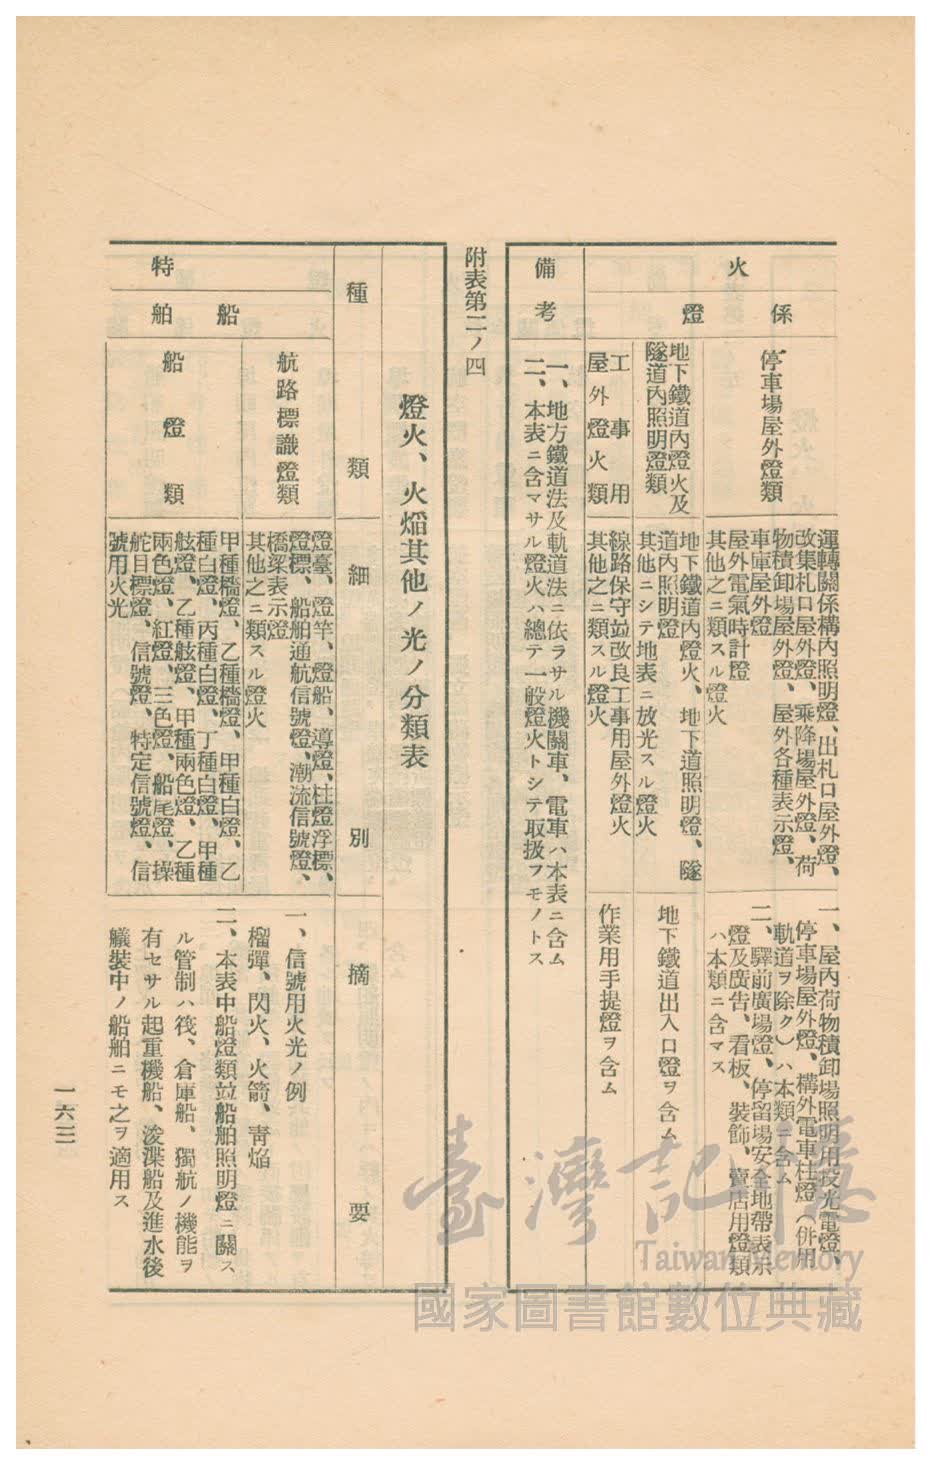 火
係
燈
停車場屋外燈類
運轉關係構內照明燈、出札口屋外燈、
改集札口屋外燈、乘降場屋外燈、荷
物積卸場屋外燈、屋外各種表示燈、
車庫屋外燈
屋外電氣時計燈
其他之ニ類スル燈火
一、屋內荷物積卸場照明用投光電燈、
停車場屋外燈、構外電車柱燈(併用
軌道ヲ除ク)ハ本類ニ含ム
二、驛前廣場燈、停留場安全地帶表示
燈及廣告、看板、裝飾、賣店用燈類
ハ本類ニ含マス
地下鐵道內燈火及
隧道內照明燈類
地下鐵道內燈火、地下道照明燈、隧
道內照明燈
其他ニシテ地表ニ放光スル燈火
地下鐵道出入口燈ヲ含ム
工事用
屋外燈火類
線路保守竝改良工事用屋外燈火
其他之ニ類スル燈火
作業用手提燈ヲ含ム
備考
一、地方鐵道法及軌道法ニ依ラサル機關車、電車ハ本表ニ含ム
二、本表ニ含マサル燈火ハ總テ一般燈火トシテ取扱フモノトス
附表第二ノ四
燈火、火焰其他ノ光ノ分類表
種類
細別
摘要
特
船舶
航路標識燈類
燈臺、燈竿、燈船、導燈、柱燈浮標、
燈標、船舶通航信號燈、潮流信號燈、
橋梁表示燈
其他之ニ類スル燈火
船燈類
甲種檣燈、乙種檣燈、甲種白燈、乙
種白燈、丙種白燈、丁種白燈、甲種
舷燈、乙種舷燈、甲種兩色燈、乙種
兩色燈、紅燈、三色燈、船尾燈、操
舵目標燈、信號燈、特定信號燈、信
號用火光
一、信號用火光ノ例
榴彈、閃火、火箭、靑焰
二、本表中船燈類竝船舶照明燈ニ關ス
ル管制ハ筏、倉庫船、獨航ノ機能ヲ
有セサル起重機船、浚渫船及進水後
艤裝中ノ船舶ニモ之ヲ適用ス
一六三
臺灣記憶
Taiwan Memory
國家圖書館數位典藏